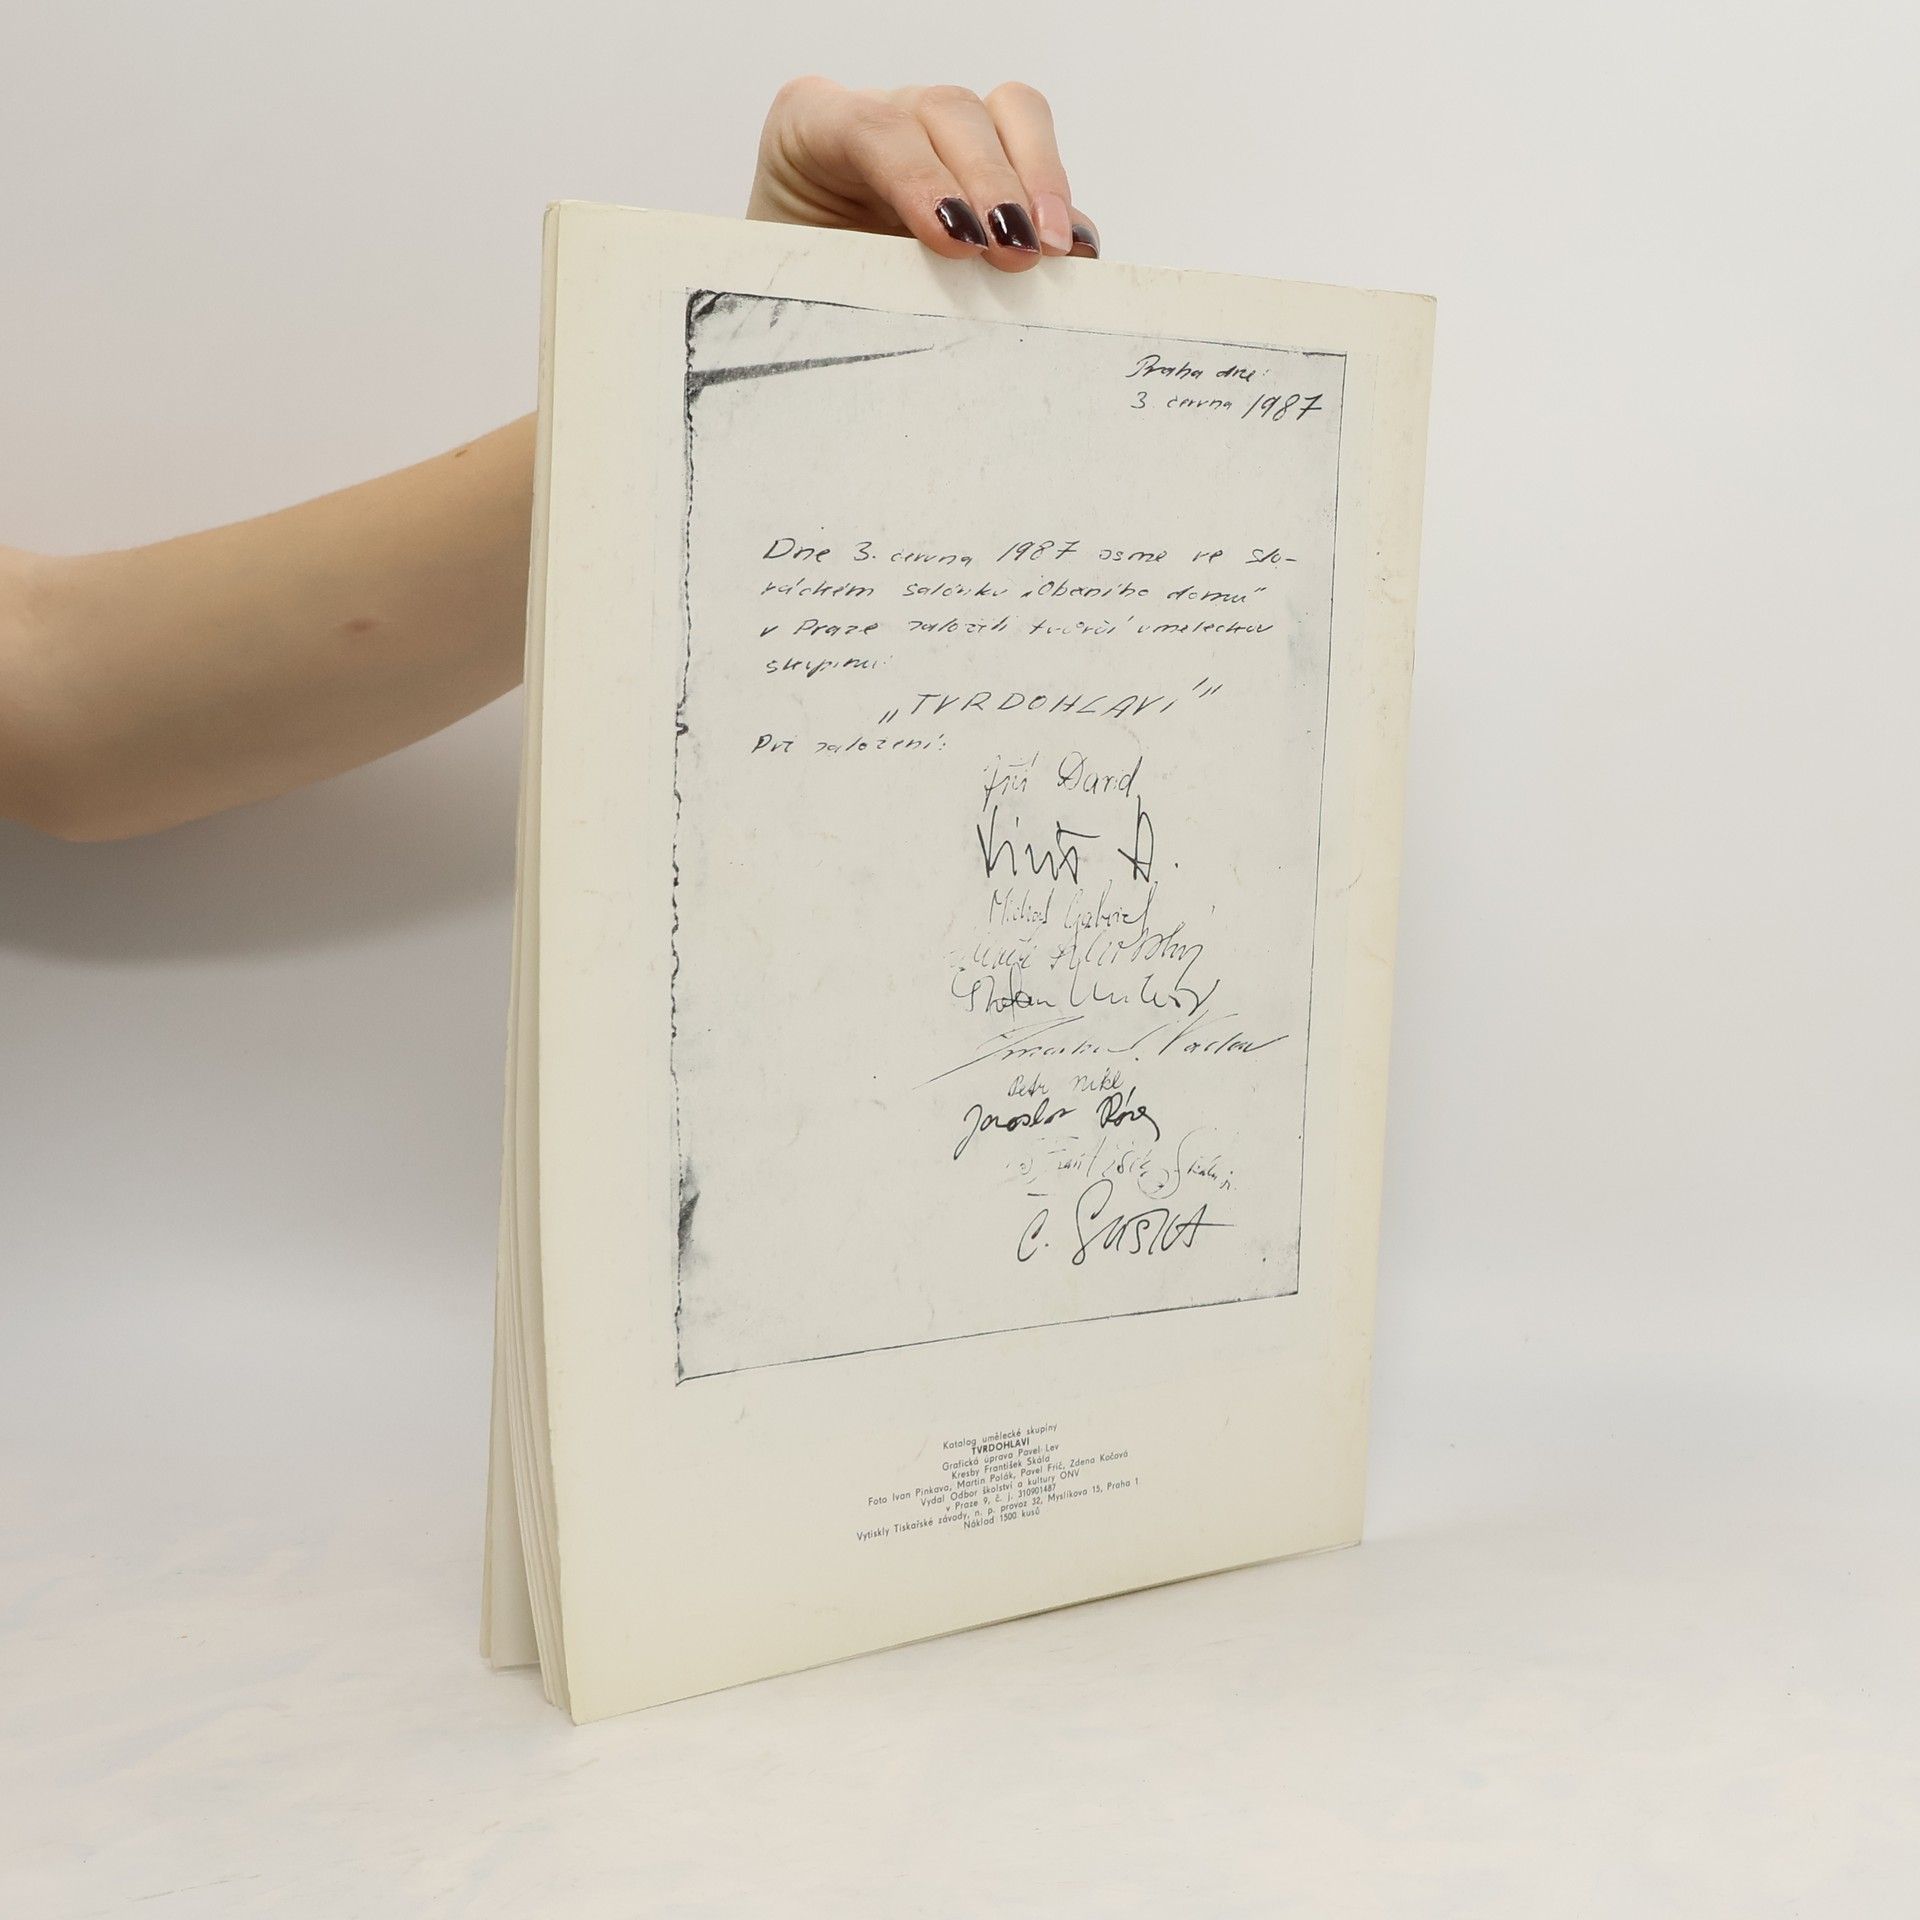 Praha dne:
3. června 1987
Dne 3. června 1987 jsme ve slo-
váckém salónku „Obecního domu"
v Praze založili tvůrčí uměleckou
skupinu:
„TVRDOHLAVÍ"
Při založení:
Jiří David
Michal Gabriel
Stefan Milkov
Petr Nikl
Jaroslav Róna
František Skála jr.
Č. Suška
Katalog umělecké skupiny
TVRDOHLAVÍ
Grafická úprava Pavel Lev
Kresby František Skála
Foto Ivan Pinkava, Martin Polák, Pavel Fřič, Zdena Kočová
Vydal Odbor školství a kultury ONV
v Praze 9, č. j. 310901487
Vytiskly Tiskařské závody, n. p. provoz 32, Myslíkova 15, Praha 1
Náklad 1500 kusů